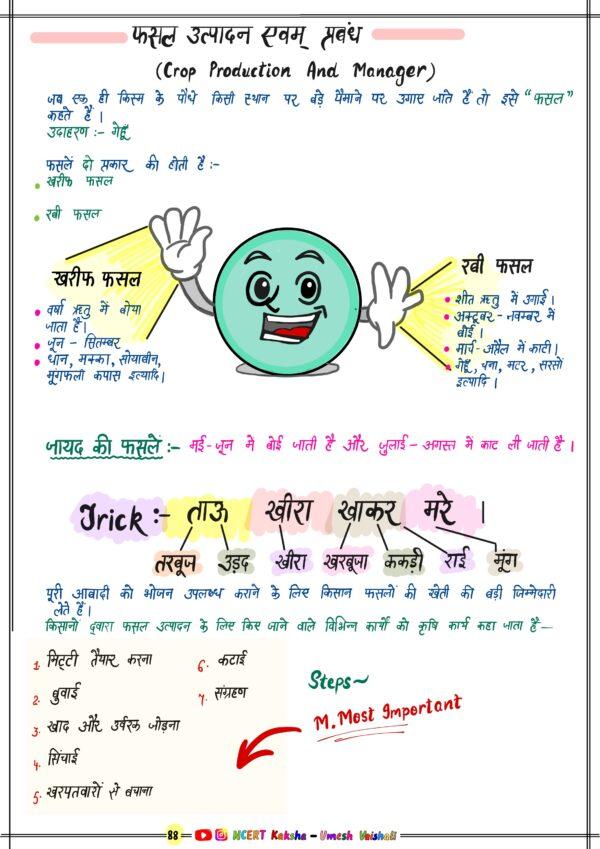 फसल उत्पादन एवम् प्रबंध
(Crop Production And Manager)
जब एक ही किस्म के पौधे किसी स्थान पर बड़े पैमाने पर उगाए जाते हैं तो इसे "फसल"
कहते हैं।
उदाहरण :- गेहूँ
फसलें दो प्रकार की होती है :-
खरीफ फसल
रबी फसल
खरीफ फसल
वर्षा ऋतु में बोया
जाता है।
जून - सितम्बर
धान, मक्का, सोयाबीन,
मूंगफली कपास इत्यादि।
रबी फसल
शीत ऋतु में उगाई।
अक्टूबर - नवम्बर में
बोई।
मार्च - अप्रैल में काटी।
गेहूँ, चना, मटर, सरसों
इत्यादि।
जायद की फसलें :- मई - जून में बोई जाती है और जुलाई - अगस्त में काट ली जाती है।
Trick :- ताऊ खीरा खाकर मरे।
तरबूज उड़द खीरा खरबूजा ककड़ी राई मूंग
पूरी आबादी को भोजन उपलब्ध कराने के लिए किसान फसलों की खेती की बड़ी जिम्मेदारी
लेते हैं।
किसानों द्वारा फसल उत्पादन के लिए किए जाने वाले विभिन्न कार्यों को कृषि कार्य कहा जाता है —
1. मिट्टी तैयार करना
2. बुवाई
3. खाद और उर्वरक जोड़ना
4. सिंचाई
5. खरपतवारों से बचाना
6. कटाई
7. संग्रहण
Steps~
M. Most Important
88 NCERT Kaksha - Umesh Vaishali